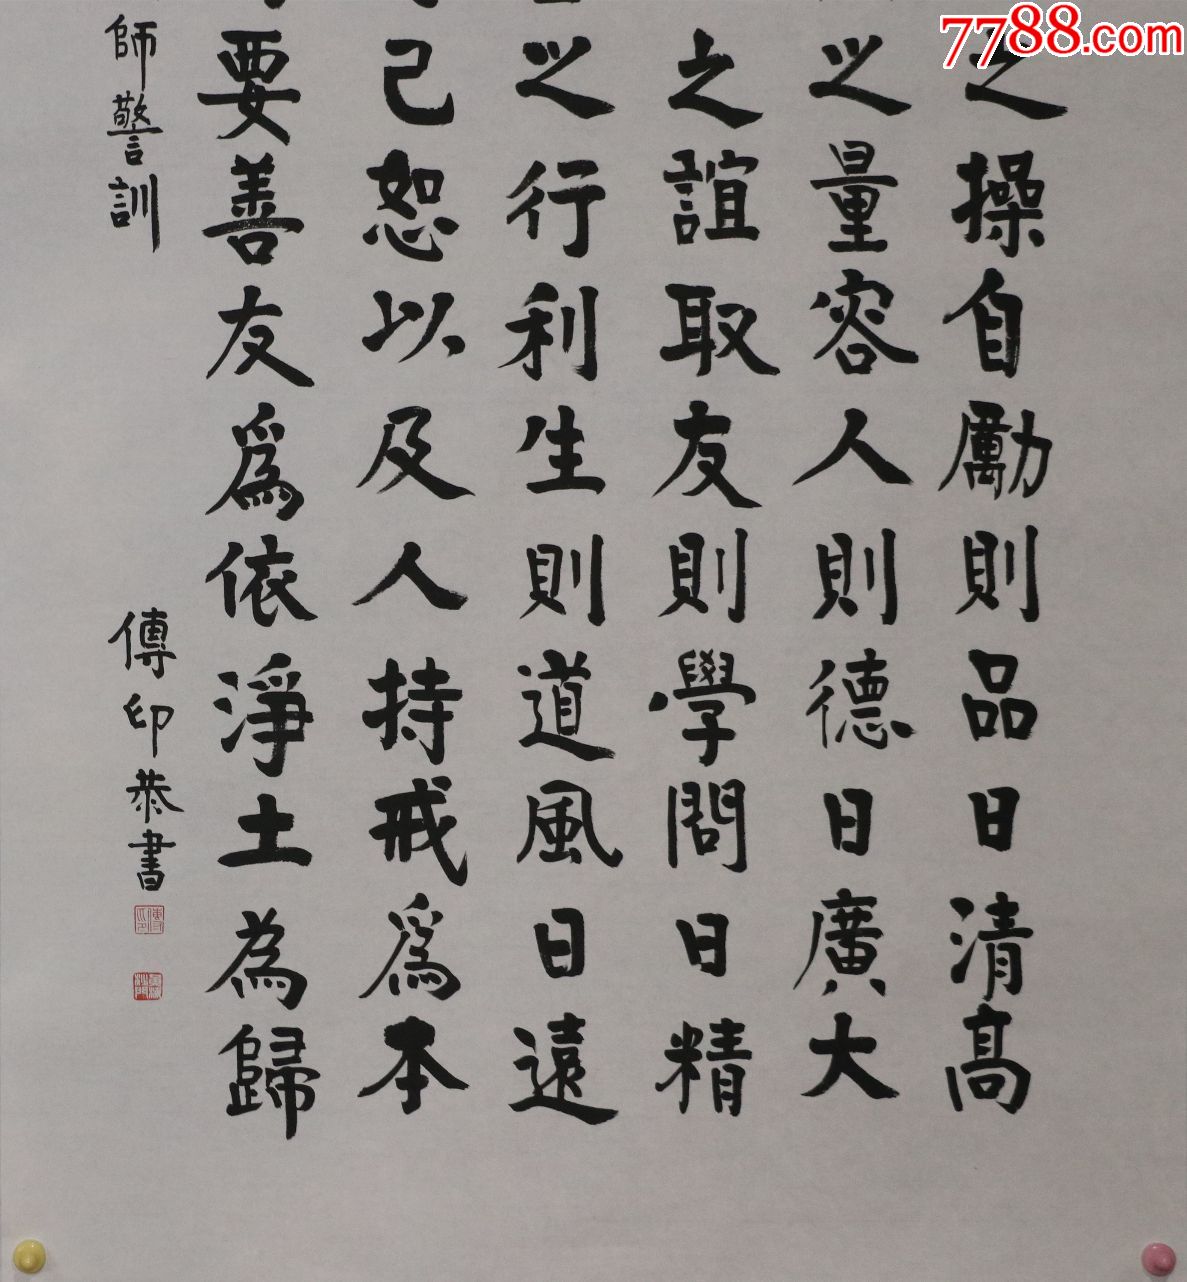 7788.com
之操自勵則品日清高
之量容人則德日廣大
之誼取友則學問日精
之行利生則道風日遠
己恕以及人持戒為本
要善友為依淨土為歸
師警訓
傳印恭書
傳印